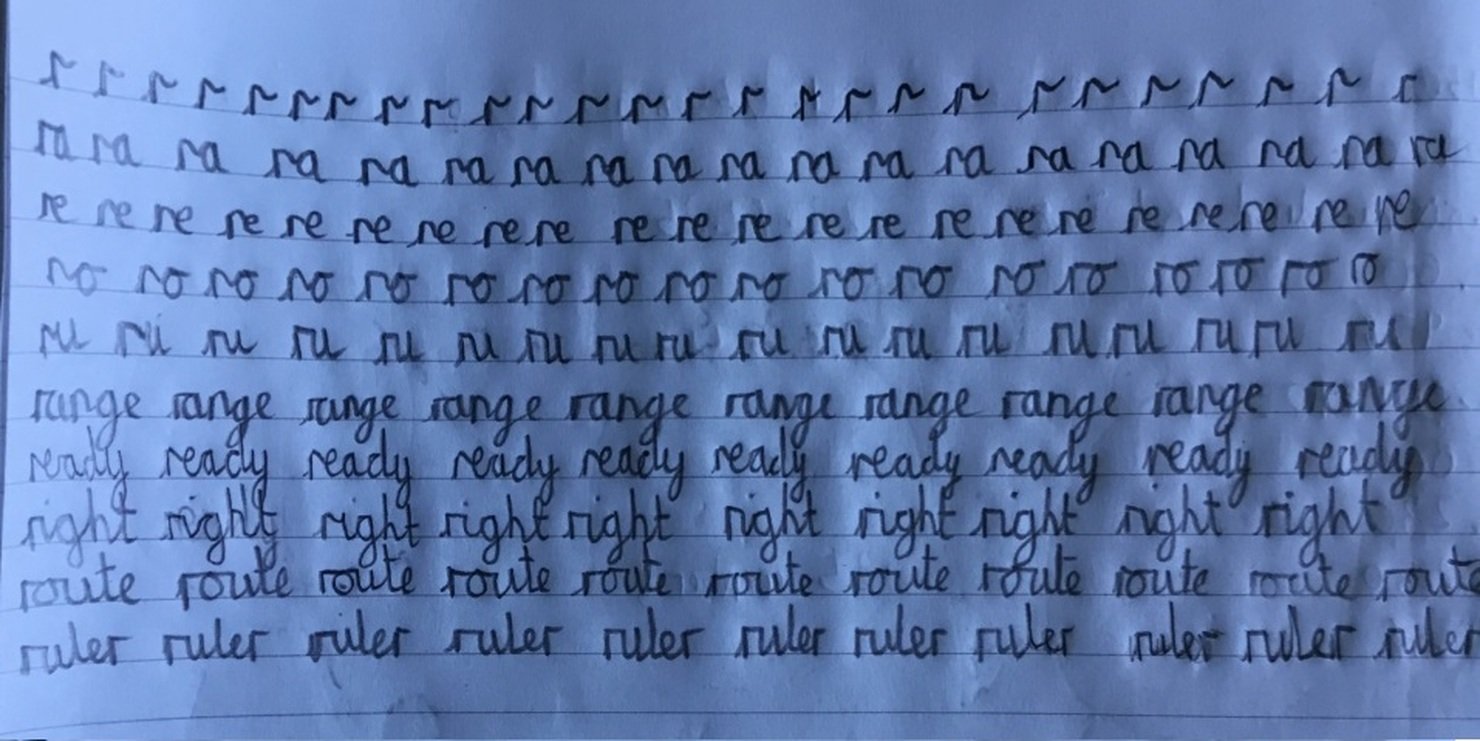 r r r r r r r r r r r r r r r r r r r r r r r r r r
ra ra ra ra ra ra ra ra ra ra ra ra ra ra ra ra ra ra ra
re re re re re re re re re re re re re re re re re re re re re re
ro ro ro ro ro ro ro ro ro ro ro ro ro ro ro ro ro ro
ru ru ru ru ru ru ru ru ru ru ru ru ru ru ru ru ru ru
range range range range range range range range range range
ready ready ready ready ready ready ready ready ready ready
right right right right right right right right right right
route route route route route route route route route route route
ruler ruler ruler ruler ruler ruler ruler ruler ruler ruler ruler